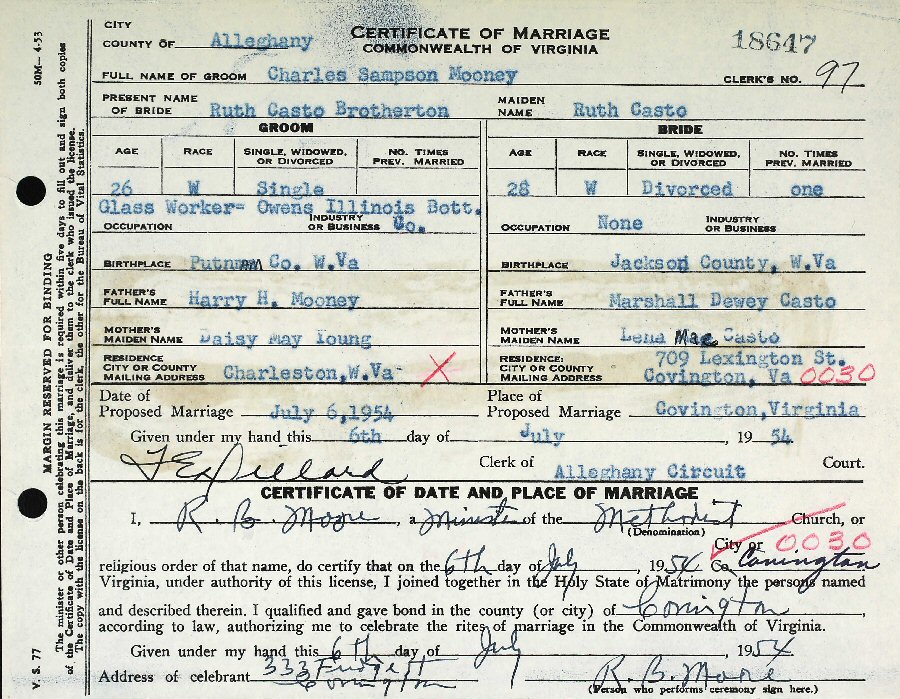 CITY
COUNTY OF Alleghany
CERTIFICATE OF MARRIAGE
COMMONWEALTH OF VIRGINIA
18647
FULL NAME OF GROOM Charles Sampson Mooney CLERK'S NO. 97
PRESENT NAME OF BRIDE Ruth Casto Brotherton MAIDEN NAME Ruth Casto
GROOM BRIDE
AGE RACE SINGLE, WIDOWED, OR DIVORCED NO. TIMES PREV. MARRIED AGE RACE SINGLE, WIDOWED, OR DIVORCED NO. TIMES PREV. MARRIED
26 W Single 28 W Divorced one
Glass Worker- Owens Illinois Bott.
OCCUPATION INDUSTRY OR BUSINESS Co. OCCUPATION None INDUSTRY OR BUSINESS
BIRTHPLACE Putnam Co. W.Va BIRTHPLACE Jackson County, W.Va
FATHER'S FULL NAME Harry H. Mooney FATHER'S FULL NAME Marshall Dewey Casto
MOTHER'S MAIDEN NAME Daisy May Young MOTHER'S MAIDEN NAME Lena Mae Casto
RESIDENCE CITY OR COUNTY MAILING ADDRESS Charleston,W.Va- X RESIDENCE: CITY OR COUNTY MAILING ADDRESS 709 Lexington St.
Covington, Va 0030
Date of Proposed Marriage July 6,1954 Place of Proposed Marriage Covington,Virginia
Given under my hand this 6th day of July, 1954
Clerk of Alleghany Circuit Court.
CERTIFICATE OF DATE AND PLACE OF MARRIAGE
I, R. B. Moore, a Minister of the Methodist Church, or
(Denomination)
City or 0030
religious order of that name, do certify that on the 6th day of July, 1954 Co. Covington
Virginia, under authority of this license, I joined together in the Holy State of Matrimony the persons named
and described therein. I qualified and gave bond in the county (or city) of Covington,
according to law, authorizing me to celebrate the rites of marriage in the Commonwealth of Virginia.
Given under my hand this 6th day of July, 1954
Address of celebrant 333
Covington R. B. Moore
(Person who performs ceremony sign here.)
V. S. 77 MARGIN RESERVED FOR BINDING 50M—4-53
The minister or other person celebrating this marriage is required within five days to fill out and sign both copies
of the Certificate of Date and Place of Marriage, and deliver them to the clerk who issued the license.
The copy with the license on the back is for the Clerk, the other for the Bureau of Vital Statistics.